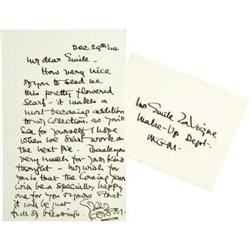 Dec 29th
My dear Emile -
How very nice
of you to send me
this pretty flowered
Scarf - it makes a
most becoming addition
to my Collection, as you'll
See for yourself I hope
when we start work on
the next Pic. Thank you
very much for your kind
thought - my wish for
you is that the Coming year
will be a Specially happy
one for you & yours that
it will be just
full of blessings.
Mr Emile LaVigne
Make-Up Dept.
M.G.M.